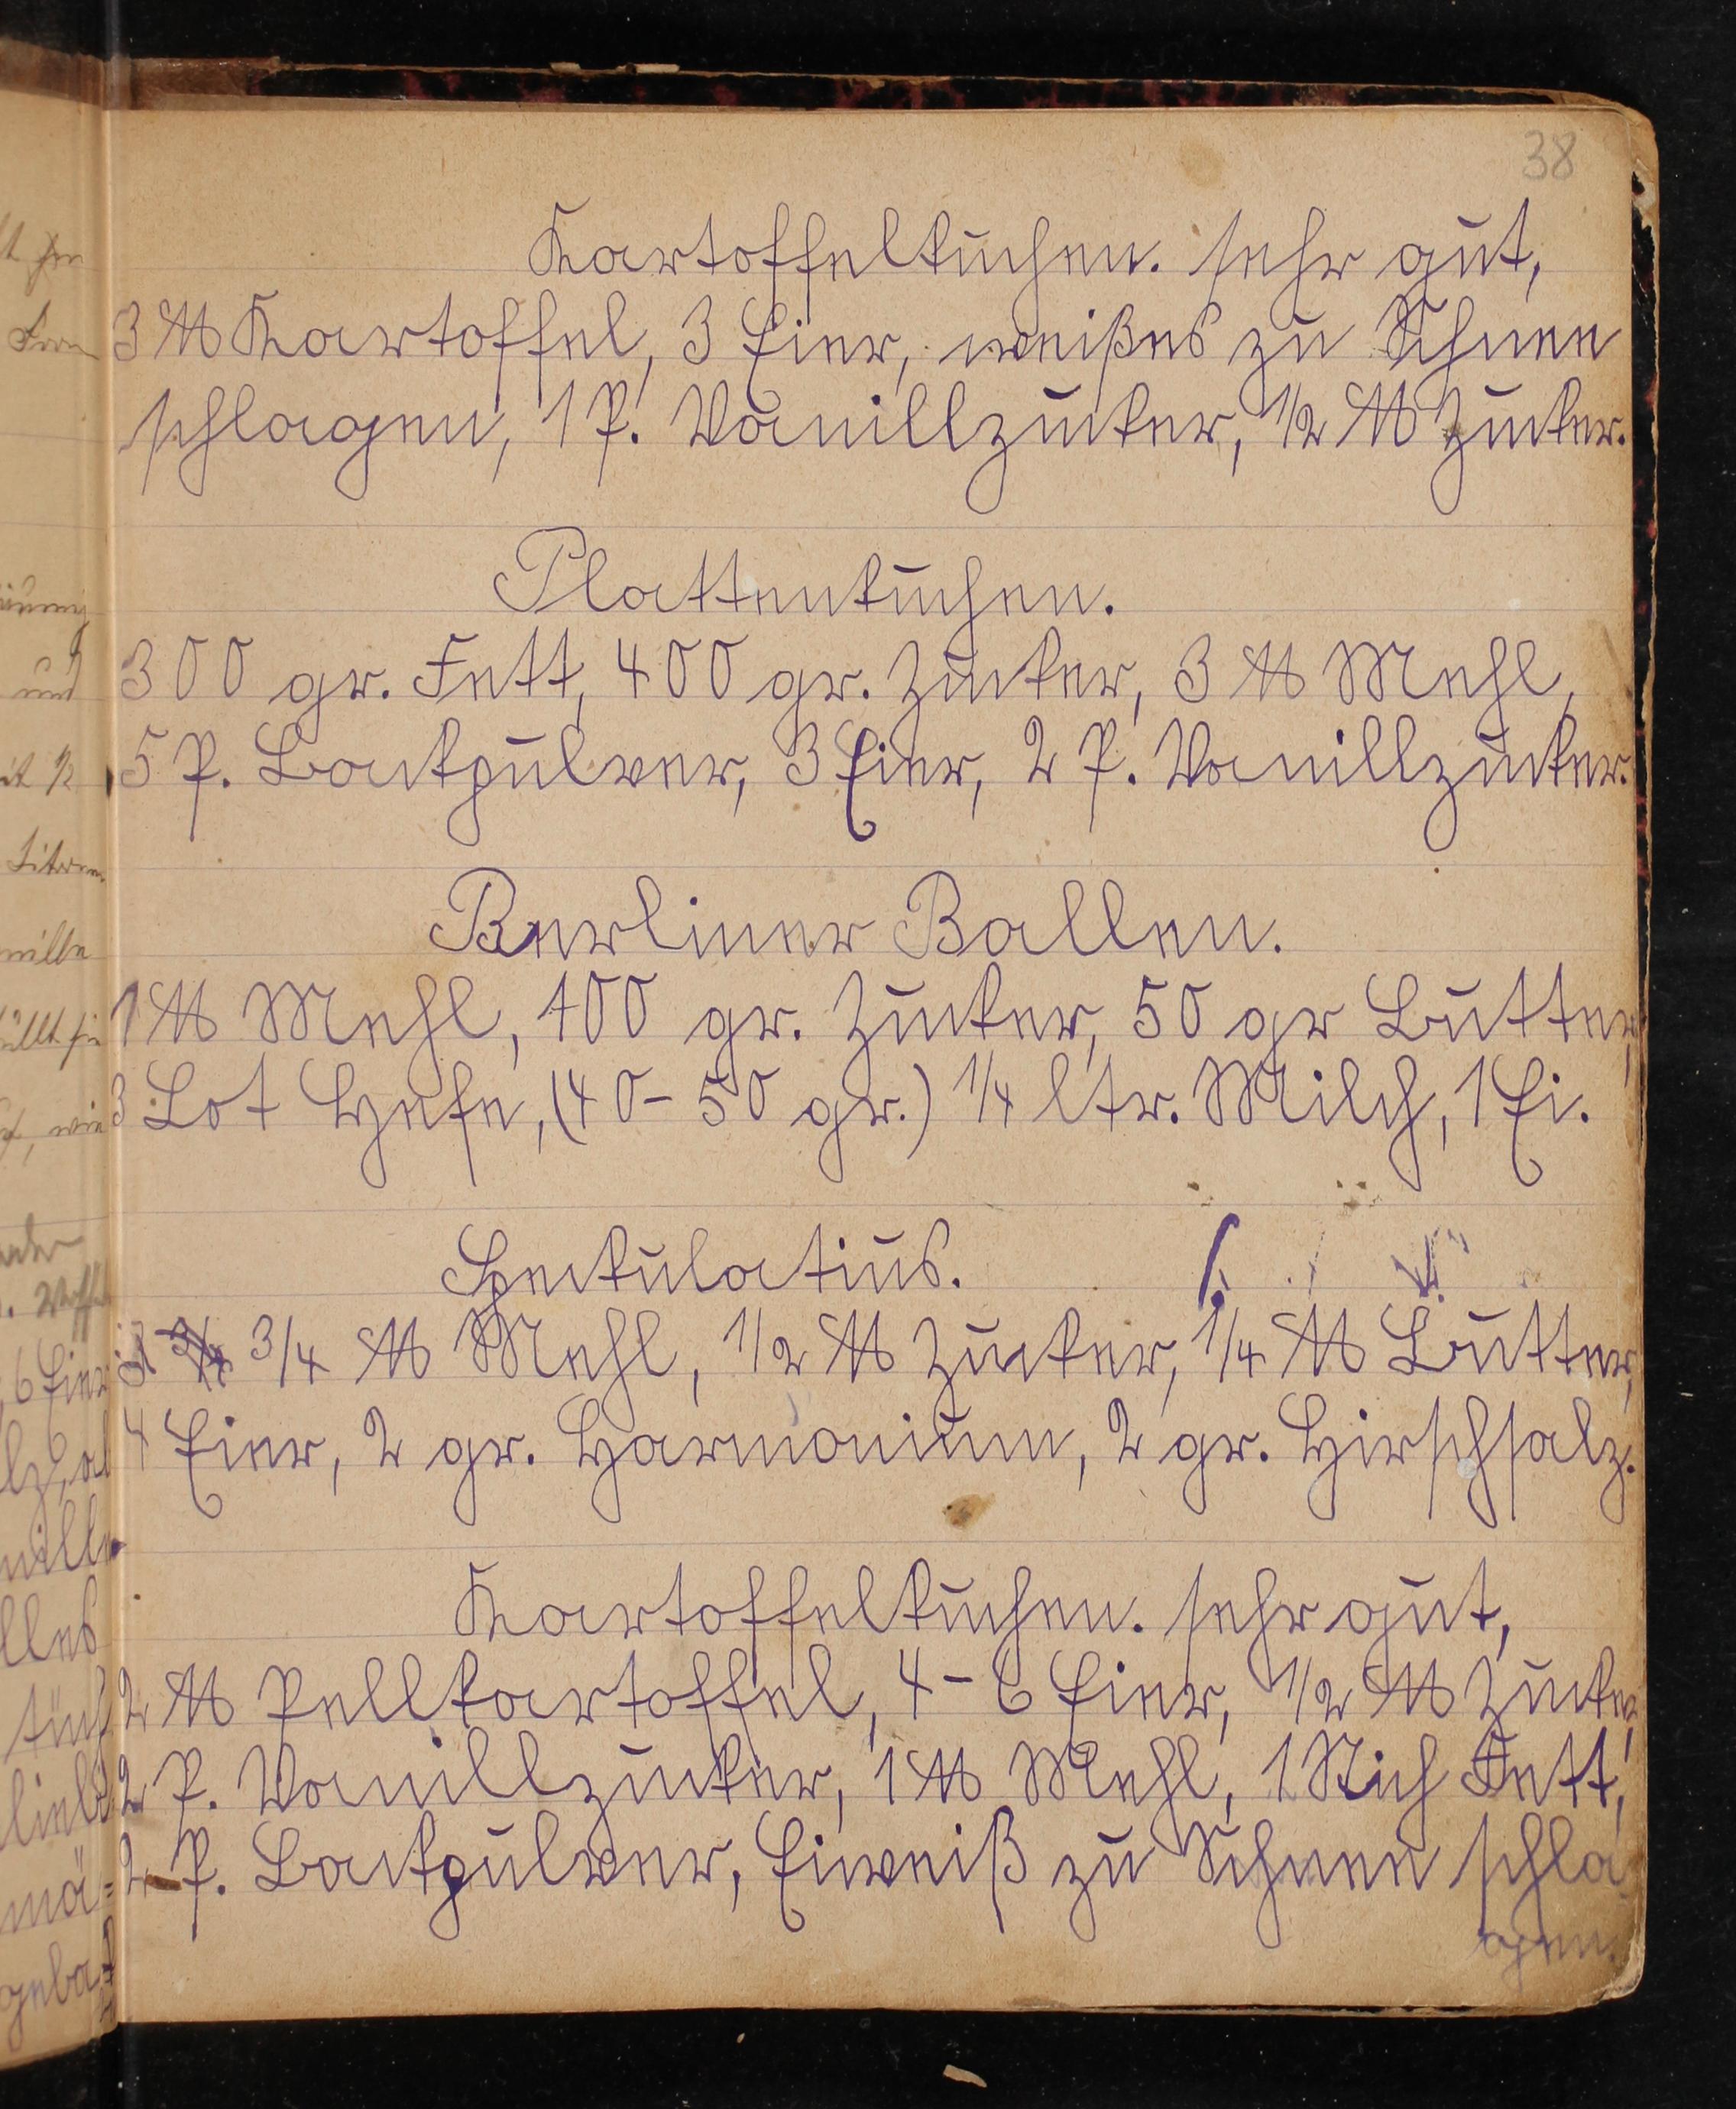 38
Kartoffelkuchen. sehr gut,
3 ℔ Kartoffel, 3 Eier, weißes zu Schnee
schlagen, 1 P. Vanillzucker, 1/2 ℔ Zucker.
Plattenkuchen.
300 gr. Fett, 400 gr. Zucker, 3 ℔ Mehl,
5 P. Backpulver, 3 Eier, 2 P. Vanillzucker.
Berliner Ballen.
1 ℔ Mehl, 100 gr. Zucker, 50 gr Butter,
3 Lot Hefe, (40-50 gr.) 1/4 ltr. Milch, 1 Ei.
Spekulatius.
3/4 ℔ Mehl, 1/2 ℔ Zucker, 1/4 ℔ Butter,
4 Eier, 2 gr. Harmonium, 2 gr. Hirschsalz.
Kartoffelkuchen. sehr gut,
2 ℔ Pellkartoffel, 4-6 Eier, 1/2 ℔ Zucker,
2 P. Vanillzucker, 1 ℔ Mehl, 1 Stich Fett,
2 P. Backpulver, Eiweiß zu Schnee schla
gen.